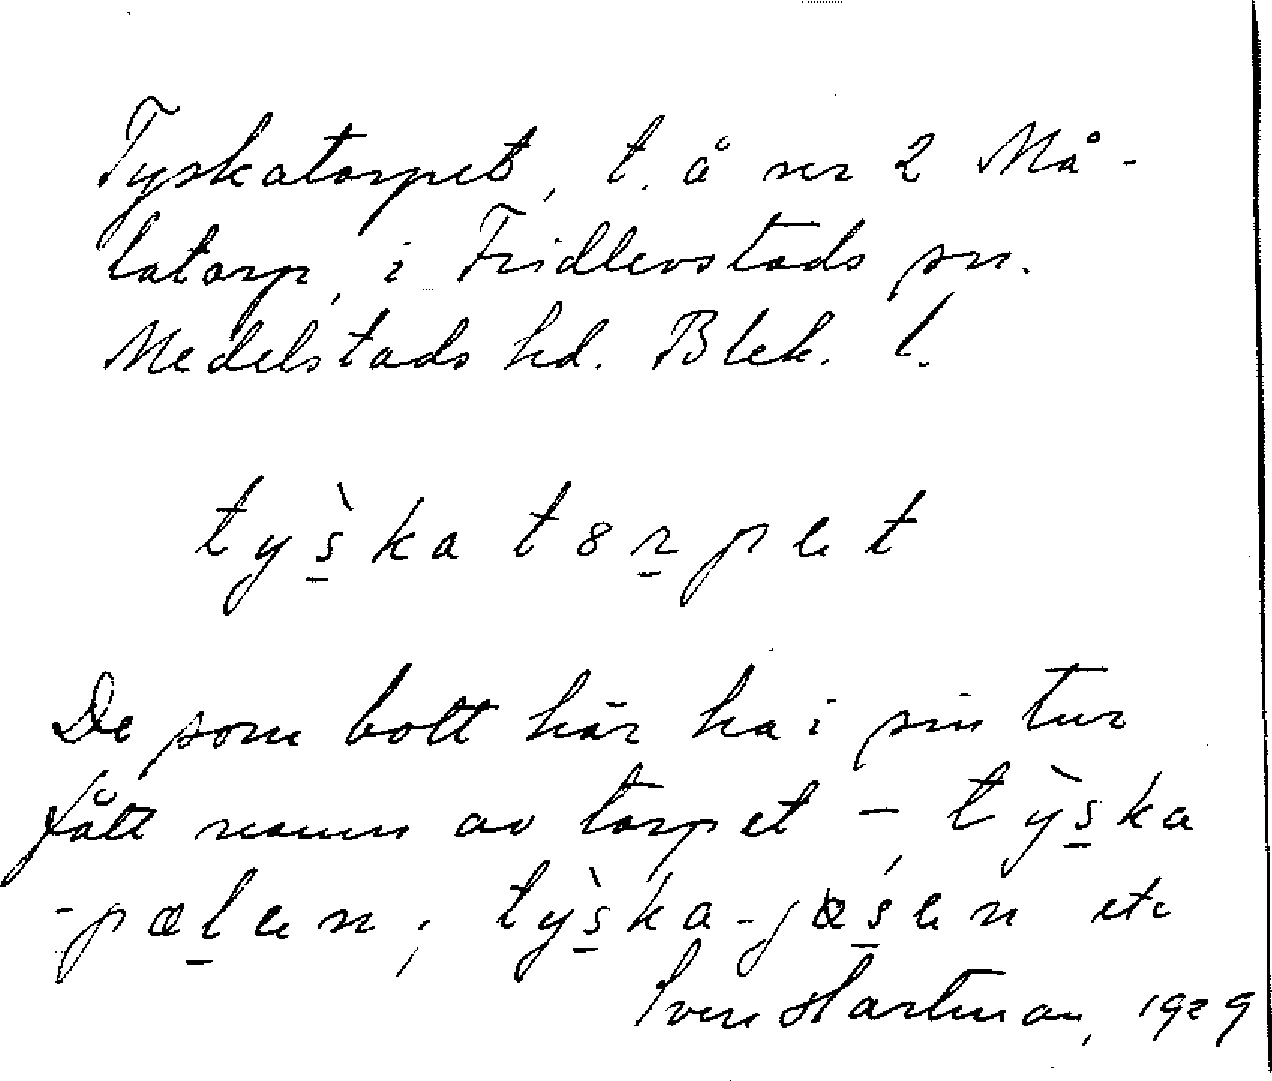 Tyskatorpet, t. å nr 2 Må-
latorp, i Fridlevstads sn.
Medelstads hd. Blek. l.
tys̠̀kat8r̠pet
De som bott här ha i sin tur
fått namn av torpet – tỳs̠ka
-pæl̠en; tỳs̠ka-jœs̠en etc
Sven Hartman, 1929